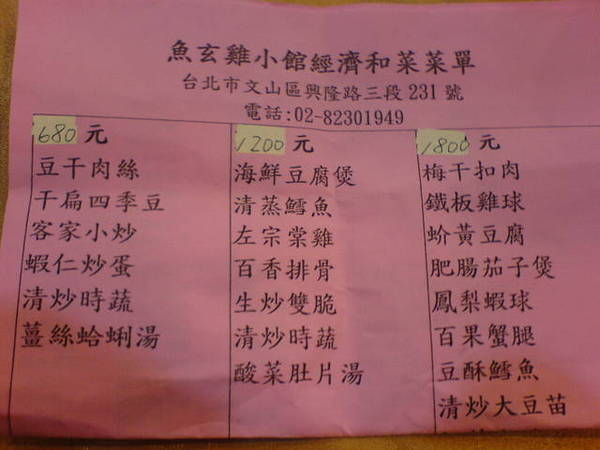 魚玄雞小館經濟和菜菜單
台北市文山區興隆路三段231號
電話:02-82301949
680元
豆干肉絲
干扁四季豆
客家小炒
蝦仁炒蛋
清炒時蔬
薑絲蛤蜊湯
1200元
海鮮豆腐煲
清蒸鱈魚
左宗棠雞
百香排骨
生炒雙脆
清炒時蔬
酸菜肚片湯
1800元
梅干扣肉
鐵板雞球
蚧黃豆腐
肥腸茄子煲
鳳梨蝦球
百果蟹腿
豆酥鱈魚
清炒大豆苗